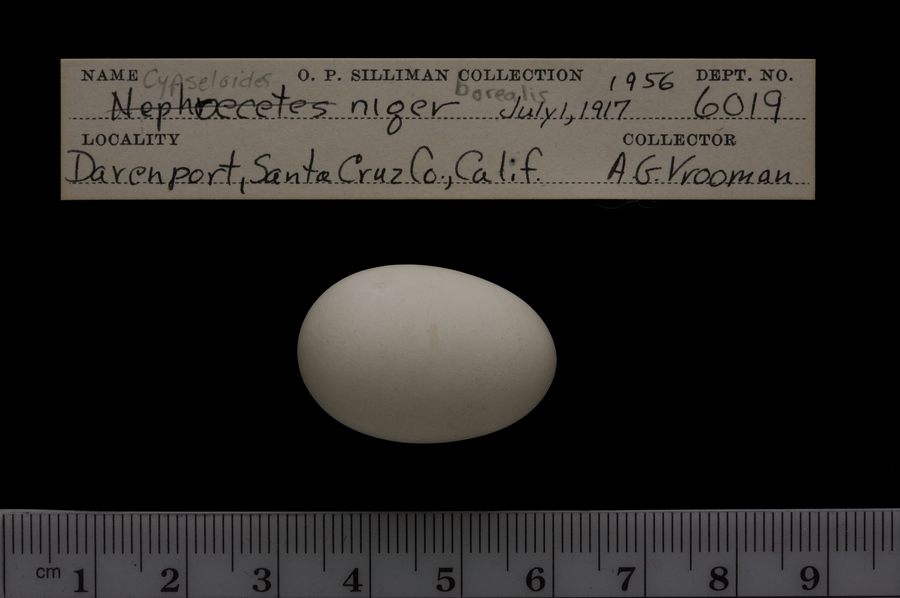 NAME Cypseloides O. P. SILLIMAN COLLECTION 1956 DEPT. NO.
Nephoecetes niger borealis July 1, 1917 6019
LOCALITY COLLECTOR
Davenport, Santa Cruz Co., Calif. A.G. Vrooman
cm 1 2 3 4 5 6 7 8 9